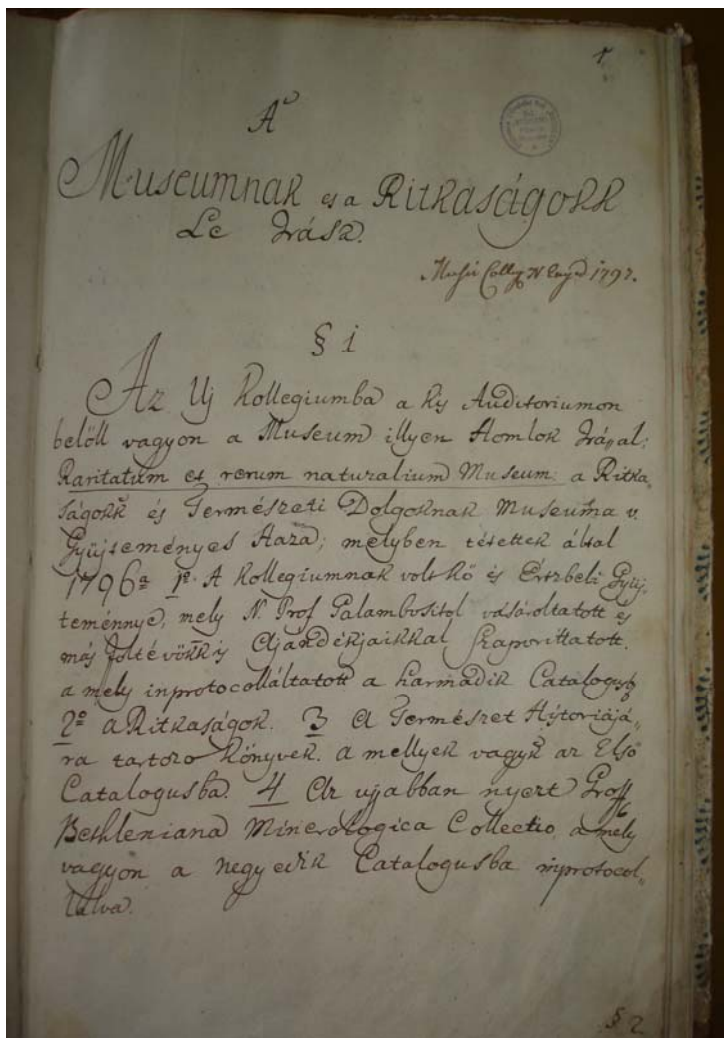 1.
A'
Museumnak es a Ritkaságokk
Le Irása.
N Enyed 1797.
§ 1
Az Uj Kollegiumba a kis Auditoriumon
belöll vagyon a Museum illyen Homlok Irással:
Raritatum et rerum naturalium Museum: a Ritka„
ságokk és Természeti Dolgoknak Museuma v.
Gyüjteményes Haza; melyben tétettek által
1796a 1o. A Kollegiumnak volt Kő és Értzbeli Gyüj„
teménnye, mely N. Prof vásároltatott és
más Jóltévőkk is Ajandékjaikkal, szaporittatott.
a mely inprotocolláltatott a harmadik Catalogusb
2o a Ritkaságok. 3 A Természet Hystoriájá„
ra tartozo Könyvek. a mellyek vagyk az Első
Catalogusba. 4 Az ujabban nyert Groff
Bethleniana Minerologica Collectio a mely
vagyon a negyedik Catalogusba inprotocol„
lálva.
§ 2